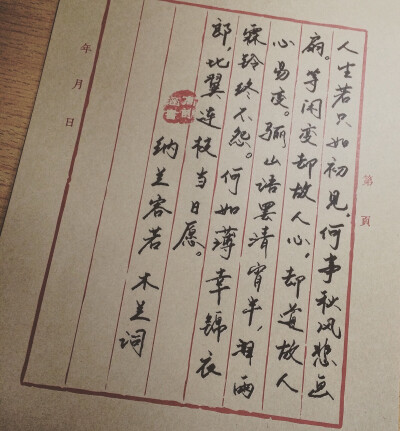 第 頁
人生若只如初见,何事秋风悲画
扇。等闲变却故人心,却道故人
心易变。骊山语罢清宵半,泪雨
霖铃终不怨。何如薄幸锦衣
郎,比翼连枝当日愿。
纳兰容若 木兰词
年 月 日